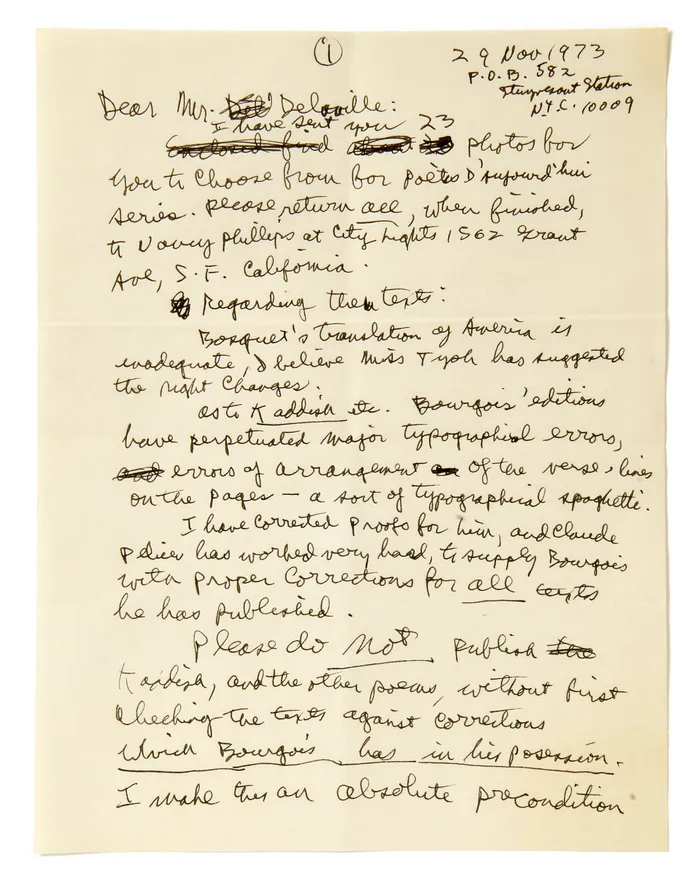 1
29 Nov 1973
P.O.B. 582
Stuyvesant Station
N.Y.C. 10009
Dear Mr. Delaville:
I have sent you 23
enclosed find about photos for
you to choose from for Poètes D'aujourd'hui
series. Please return all, when finished,
to Nancy Phillips at City Lights 1562 Grant
Ave, S.F. California.
Regarding the texts:
Bosquet's translation of America is
inadequate, I believe Miss Tysh has suggested
the right changes.
as to Kaddish etc. Bourgois' editions
have perpetuated major typographical errors,
and errors of arrangement of the verse, lines
on the pages — a sort of typographical spaghetti.
I have corrected proofs for him, and Claude
Pelieu has worked very hard, to supply Bourgois
with proper corrections for all texts
he has published.
Please do Not publish the
Kaddish, and the other poems, without first
checking the texts against corrections
which Bourgois has in his posession.
I make this an absolute precondition